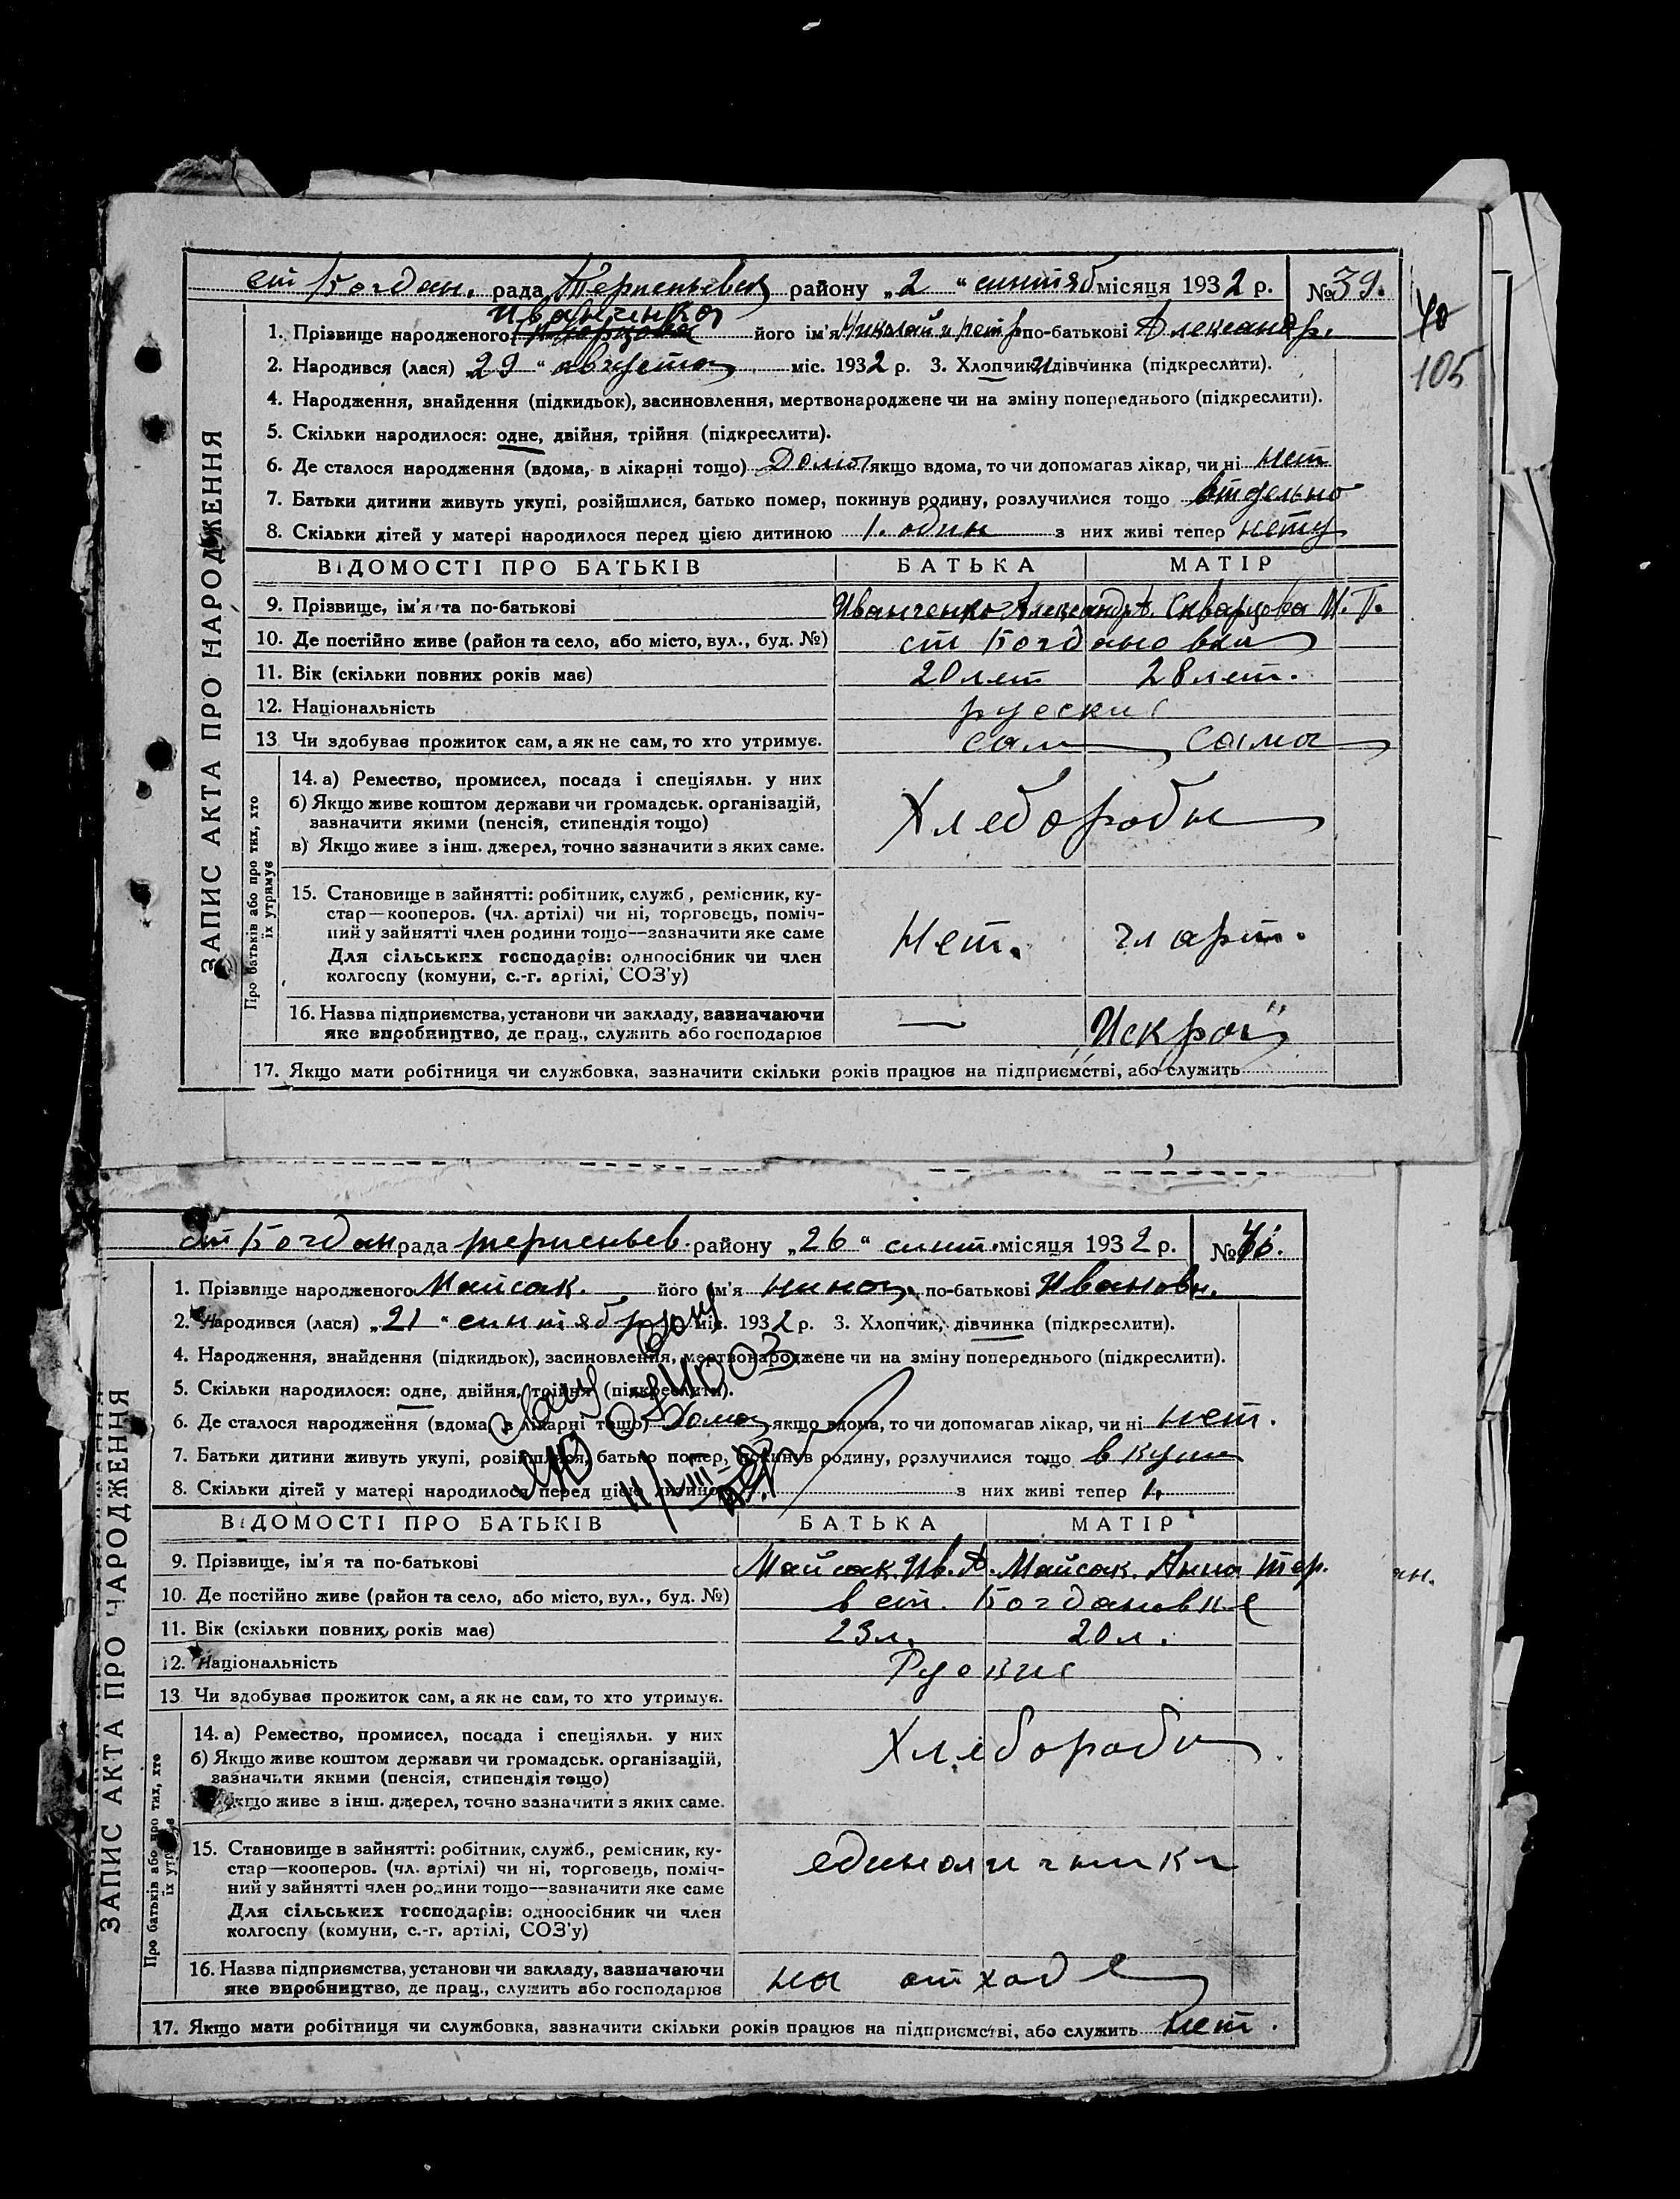 ст Богдан. рада Терпеньевск району „2“ сентяб місяця 1932 р. №39.
Иванченко
1. Прізвище народженого його ім'я Николай и петр по-батькові Александр.
40
2. Народився (лася) „29“ августа міс. 1932 р. 3. Хлопчик, дівчинка (підкреслити).
105
4. Народження, знайдення (підкидьок), засиновлення, мертвонароджене чи на зміну попереднього (підкреслити).
5. Скільки народилося: одне, двійня, трійня (підкреслити).
6. Де сталося народження (вдома, в лікарні тощо) Дома якщо вдома, то чи допомагав лікар, чи ні нет
7. Батьки дитини живуть укупі, розійшлися, батько помер, покинув родину, розлучилися тощо отдельно
8. Скільки дітей у матері народилося перед цією дитиною 1. один з них живі тепер нету
ВІДОМОСТІ ПРО БАТЬКІВ БАТЬКА МАТІР
9. Прізвище, ім'я та по-батькові Иванченко Александр А. Скварцова М. П.
10. Де постійно живе (район та село, або місто, вул., буд. №) ст Богдановка
11. Вік (скільки повних років має) 20 лет 28 лет.
12. Національність руские
13 Чи здобував прожиток сам, а як не сам, то хто утримує. сам сама
14. а) Ремество, промисел, посада і спеціяльн. у них
б) Якщо живе коштом держави чи громадськ. організацій,
зазначити якими (пенсія, стипендія тощо)
Хлеборобы
в) Якщо живе з інш. джерел, точно зазначити з яких саме.
15. Становище в зайнятті: робітник, служб., ремісник, ку-
стар—кооперов. (чл. артілі) чи ні, торговець, поміч-
ний у зайнятті член родини тощо—зазначити яке саме
Нет. чл арт.
Для сільських господарів: одноосібник чи член
колгоспу (комуни, с.-г. артілі, СОЗ'у)
16. Назва підприємства, установи чи закладу, зазначаючи
яке виробництво, де прац., служить або господарює — „Искра“
17. Якщо мати робітниця чи службовка, зазначити скільки років працює на підприємстві, або служить
ЗАПИС АКТА ПРО НАРОДЖЕННЯ
Про батьків або про тих, хто
їх утримує
ст Богдан рада терпеньев. району „26“ сент. місяця 1932 р. №
1. Прізвище народженого Майсак. його ім'я нина по-батькові Ивановн.
2. Народився (лася) „21“ сентября міс. 1932 р. 3. Хлопчик, дівчинка (підкреслити).
4. Народження, знайдення (підкидьок), засиновлення, мертвонароджене чи на зміну попереднього (підкреслити).
5. Скільки народилося: одне, двійня, трійня (підкреслити).
6. Де сталося народження (вдома, в лікарні тощо) Дома якщо вдома, то чи допомагав лікар, чи ні нет.
7. Батьки дитини живуть укупі, розійшлися, батько помер, покинув родину, розлучилися тощо в купи
8. Скільки дітей у матері народилося перед цією дитиною з них живі тепер 1.
ВІДОМОСТІ ПРО БАТЬКІВ БАТЬКА МАТІР
9. Прізвище, ім'я та по-батькові Майсак. Ив. А. Майсак. Анна тер.
ан.
10. Де постійно живе (район та село, або місто, вул., буд. №) в ст. Богдановке
11. Вік (скільки повних років має) 23 л. 20 л.
12. Національність Руские
13 Чи здобував прожиток сам, а як не сам, то хто утримує.
14. а) Ремество, промисел, посада і спеціяльн. у них
б) Якщо живе коштом держави чи громадськ. організацій,
зазначити якими (пенсія, стипендія тощо)
Хлебороби
якщо живе з інш. джерел, точно зазначити з яких саме.
15. Становище в зайнятті: робітник, служб., ремісник, ку-
стар—кооперов. (чл. артілі) чи ні, торговець, поміч-
ний у зайнятті член родини тощо—зазначити яке саме
единоличники
Для сільських господарів: одноосібник чи член
колгоспу (комуни, с.-г. артілі, СОЗ'у)
16. Назва підприємства, установи чи закладу, зазначаючи
яке виробництво, де прац., служить або господарює на отходе
17. Якщо мати робітниця чи службовка, зазначити скільки років працює на підприємстві, або служить нет.
ЗАПИС АКТА ПРО НАРОДЖЕННЯ
Про батьків або про тих, хто